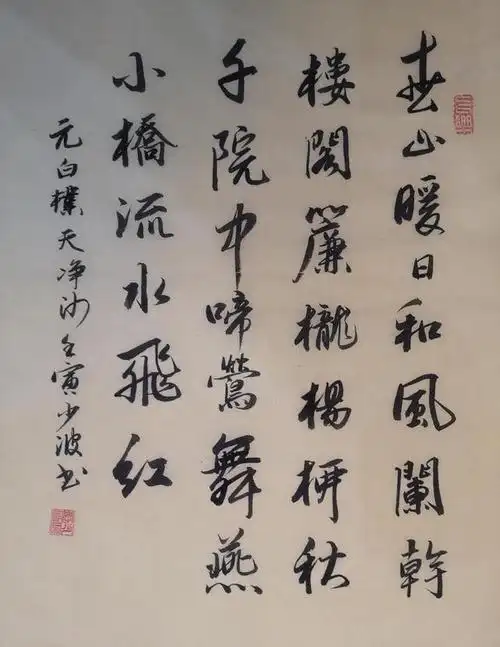 春山暖日和風闌幹
樓閣簾櫳楊柳秋
千院中啼鶯舞燕
小橋流水飛红
元白樸天净沙壬寅少波书